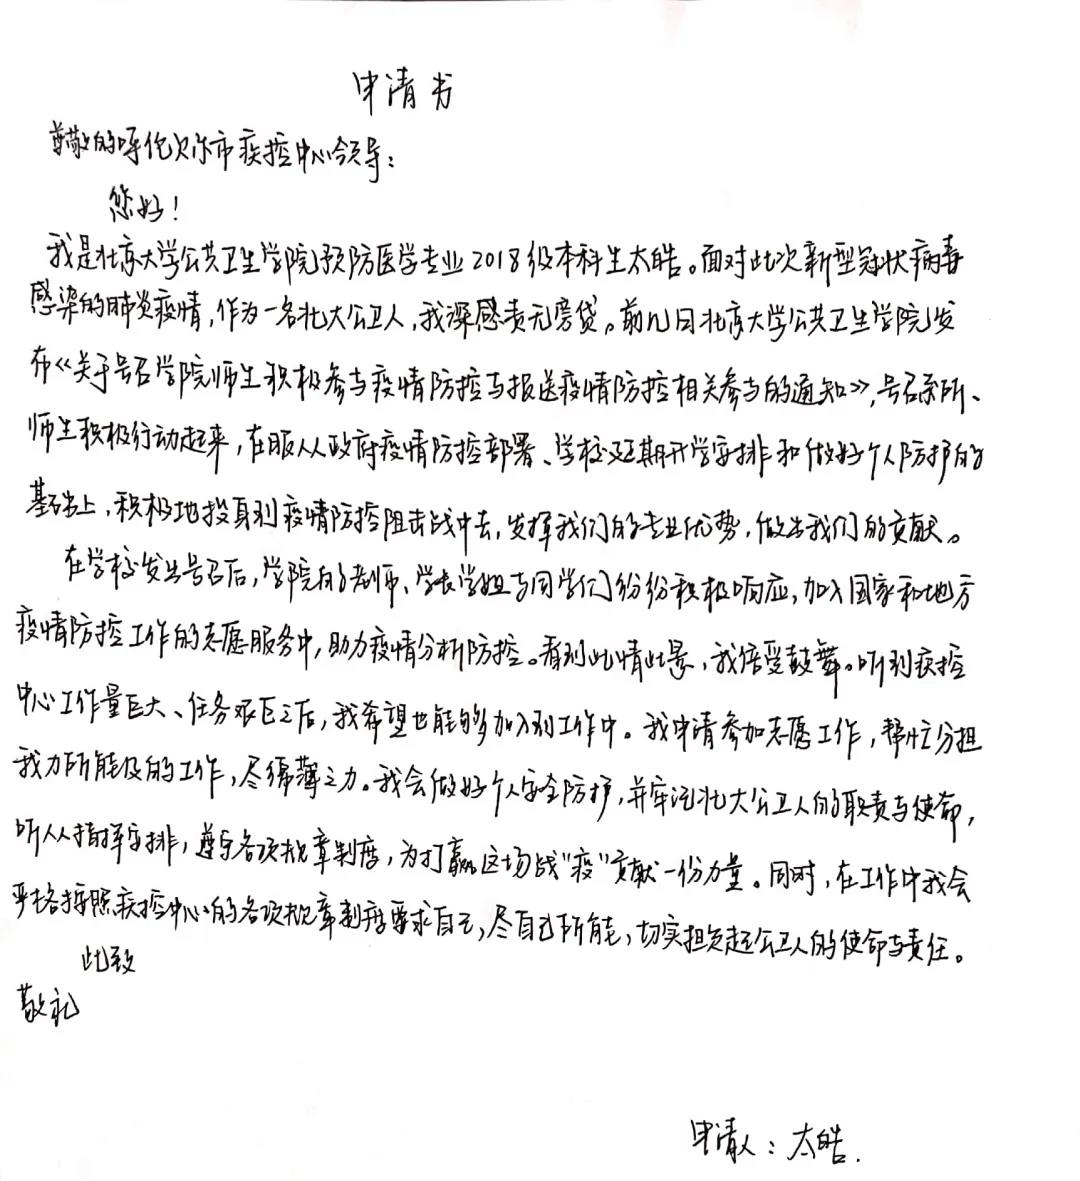 申请书
尊敬的呼伦贝尔市疾控中心领导：
您好！
我是北京大学公共卫生学院预防医学专业2018级本科生太皓。面对此次新型冠状病毒
感染的肺炎疫情，作为一名北大公卫人，我深感责无旁贷。前几日北京大学公共卫生学院发
布《关于号召学院师生积极参与疫情防控与报送疫情防控相关参与的通知》，号召系所、
师生积极行动起来，在服从政府疫情防控部署、学校延期开学安排和做好个人防护的
基础上，积极地投身到疫情防控阻击战中去，发挥我们的专业优势，做出我们的贡献。
在学校发出号召后，学院的老师、学长学姐与同学们纷纷积极响应，加入国家和地方
疫情防控工作的志愿服务中，助力疫情分析防控。看到此情此景，我倍受鼓舞。听到疾控
中心工作量巨大、任务艰巨之后，我希望也能够加入到工作中。我申请参加志愿工作，帮忙分担
我力所能及的工作，尽绵薄之力。我会做好个人安全防护，并牢记北大公卫人的职责与使命，
听从指挥安排，遵守各项规章制度，为打赢这场战“疫”贡献一份力量。同时，在工作中我会
严格按照疾控中心的各项规章制度要求自己，尽自己所能，切实担负起公卫人的使命与责任。
此致
敬礼
申请人：太皓.